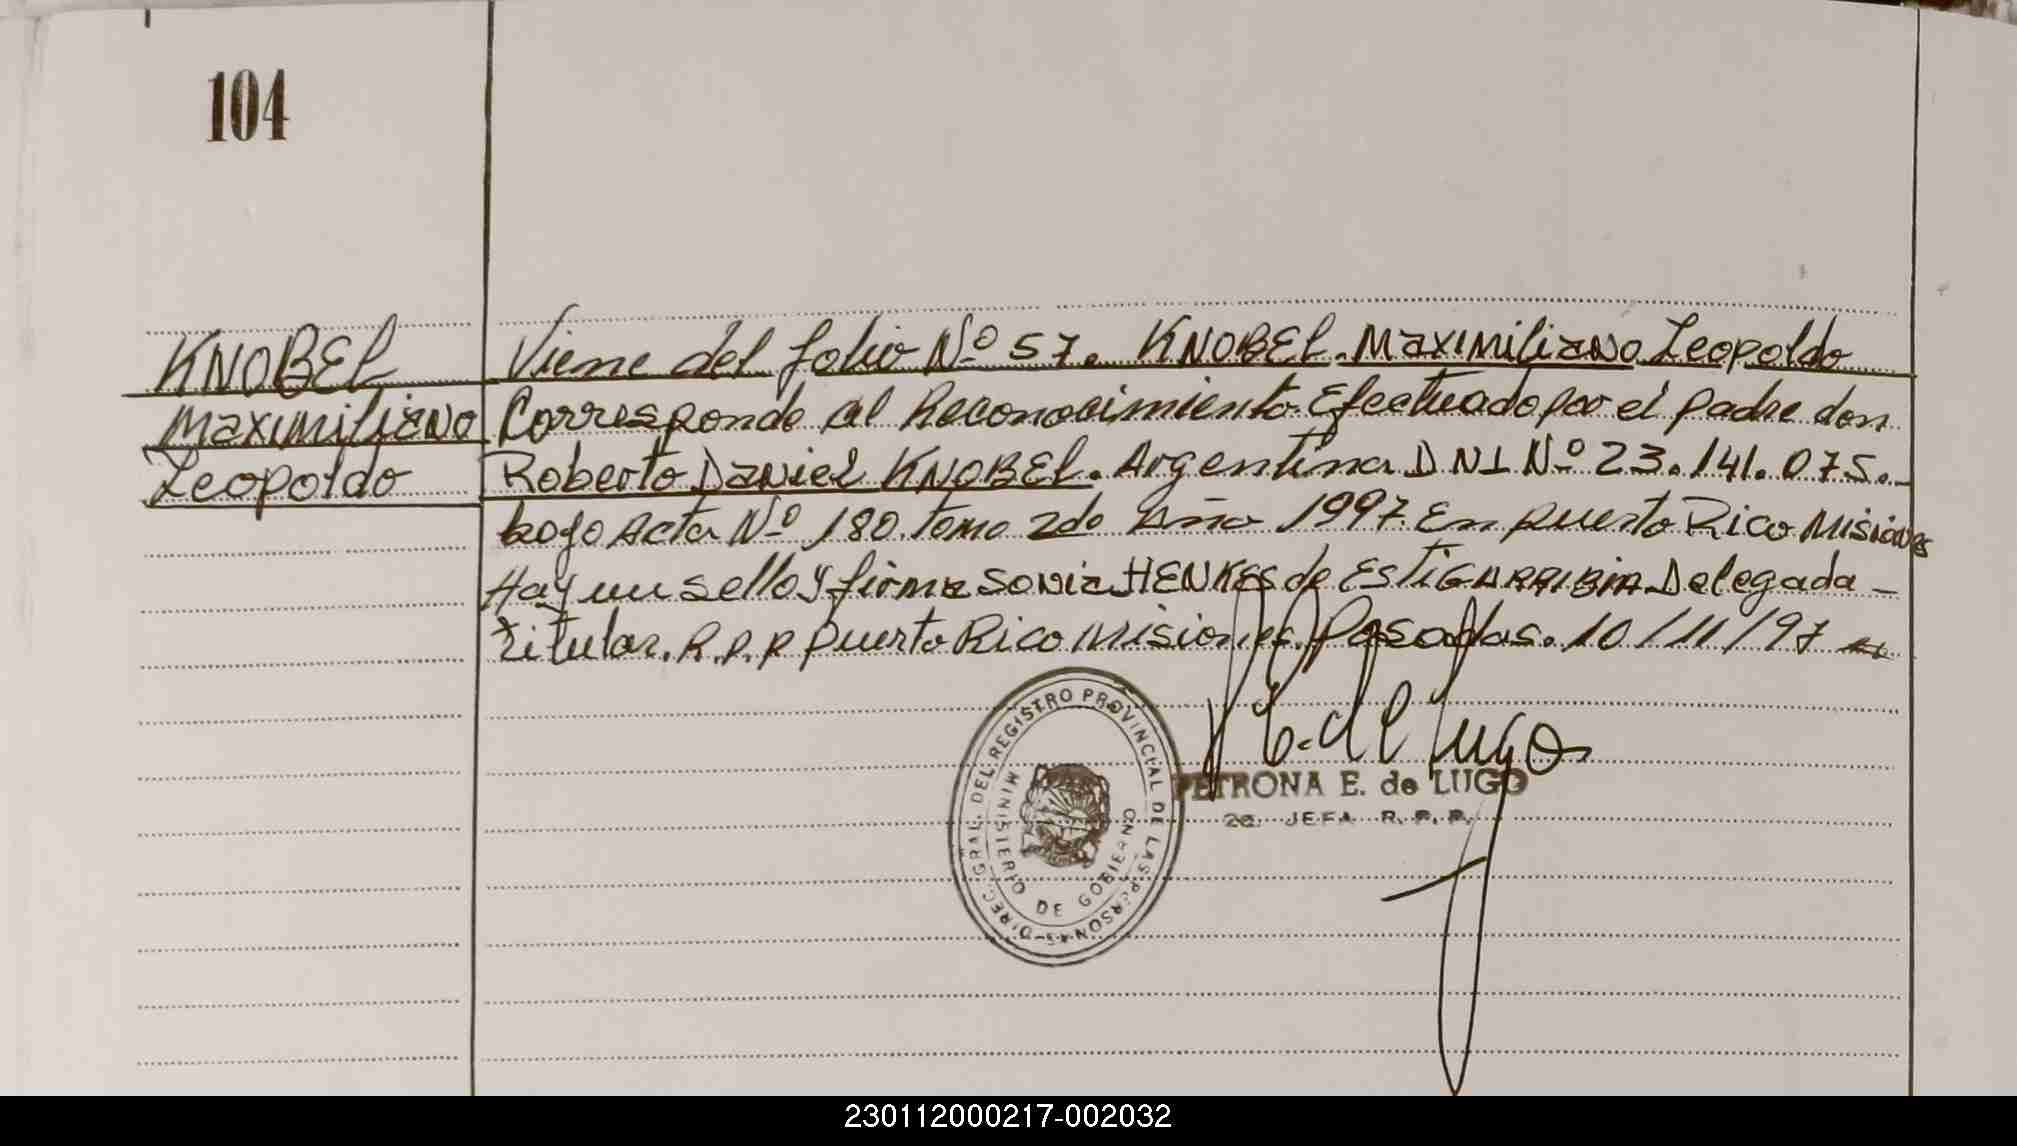 104
KNOBEL
Maximiliano
Leopoldo
Viene del folio Nº 57. KNOBEL. Maximiliano Leopoldo
Corresponde al Reconocimiento Efectuado por el padre don
Roberto Daniel KNOBEL. Argentina DNI Nº 23.141.075.
bajo Acta Nº 180. tomo 2do Año 1997. En puerto Rico Misiones
Hay un sello y firma Sonia HENKES de ESTIGARRIBIA Delegada -
titular. R.P.P Puerto Rico Misiones. Posadas. 10/11/97
P.E. de Lugo
PETRONA E. de LUGO
2a. JEFA R. P. P.
DIREC. GRAL. DEL REGISTRO PROVINCIAL DE LAS PERSONAS
MINISTERIO DE GOBIERNO
230112000217-002032